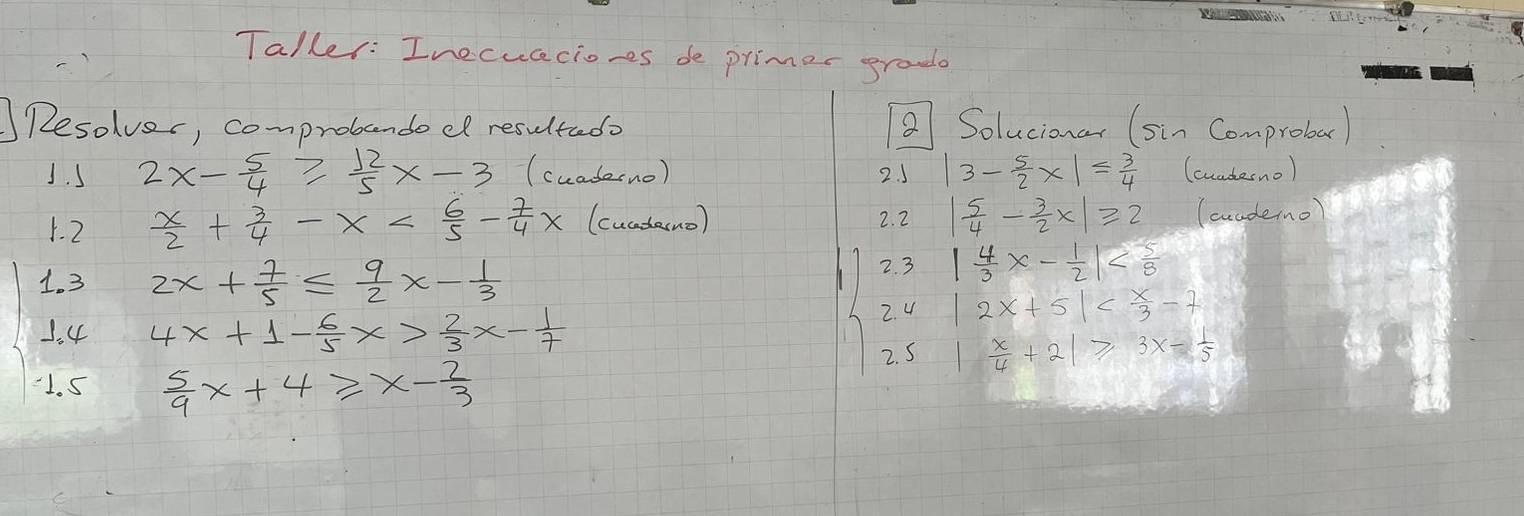 Taller: Inecuaciones de primer grado
] Resolver, comprobando el resultado
1.1 2x - 5/4 ≥ 12/5 x - 3 (cuaderno)
1.2 x/2 + 3/4 - x < 6/5 - 7/4 x (cuaderno)
1.3 2x + 7/5 ≤ 9/2 x - 1/3
1.4 4x + 1 - 6/5 x > 2/3 x - 1/7
1.5 5/9 x + 4 ≥ x - 2/3
2 Solucionar (sin Comprobar)
2.1 |3 - 5/2 x| ≤ 3/4 (cuaderno)
2.2 |5/4 - 3/2 x| ≥ 2 (cuaderno)
2.3 |4/3 x - 1/2| < 5/8
2.4 |2x + 5| < x/3 - 7
2.5 |x/4 + 2| ≥ 3x - 1/5